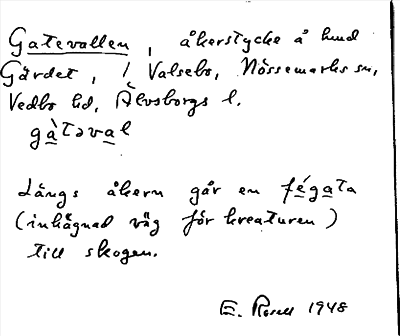 Gatevallen, åkerstycke å hmd
Gärdet, 1/ Valsebo, Nössemarks sn,
Vedbo hd, Älvsborgs l.
gàtəval
Längs åkern går en fégata
(inhägnad väg för kreaturen)
till skogen.
E. Rosell 1948